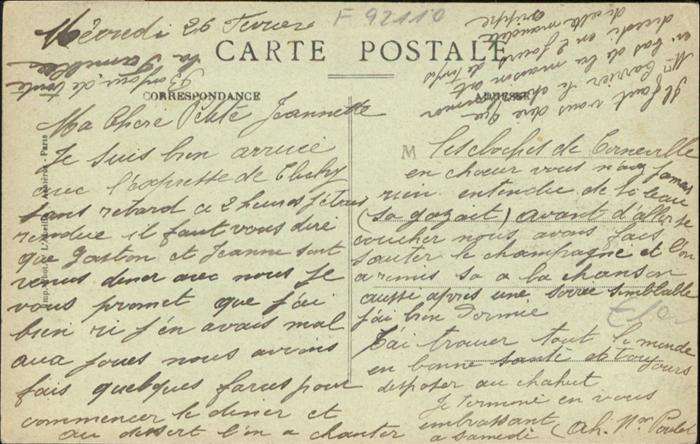 Mercredi 26 Fevriere
F 92110
CARTE POSTALE
CORRESPONDANCE
ADRESSE
Bonjour de toute
la famille
Ma Chere Petite Jeannette
Je suis bien arrivée
avec l'expresse de Clichy
sans retard a 2 heures j'étais
rendue il faut vous dire
que Gaston et Jeanne sont
venus diner avec nous Je
vous promet que j'ai
bien ri j'en avais mal
aux joues nous avions
fais quelques farces pour
commencer le diner et
au dessert l'on a chanter
les cloches de Corneville
en choeur vous navez jamais
rien entendue de si beau
(sa gazait) avant d'aller se
coucher nous avons fais
sauter le champagne et l'on
a remis sa a la chanson
aussi après une soirée semblable
j'ai bien dormue
J'ai trouver tout le monde
en bonne santé et toujours
disposer au chahut
Je termine en vous
embrassant
a samedi (Ah. Mme
Il faut vous dire que
Mme Carrier le
en bas de la maison est
decedé en 2 jours
de cette maudite
grippe